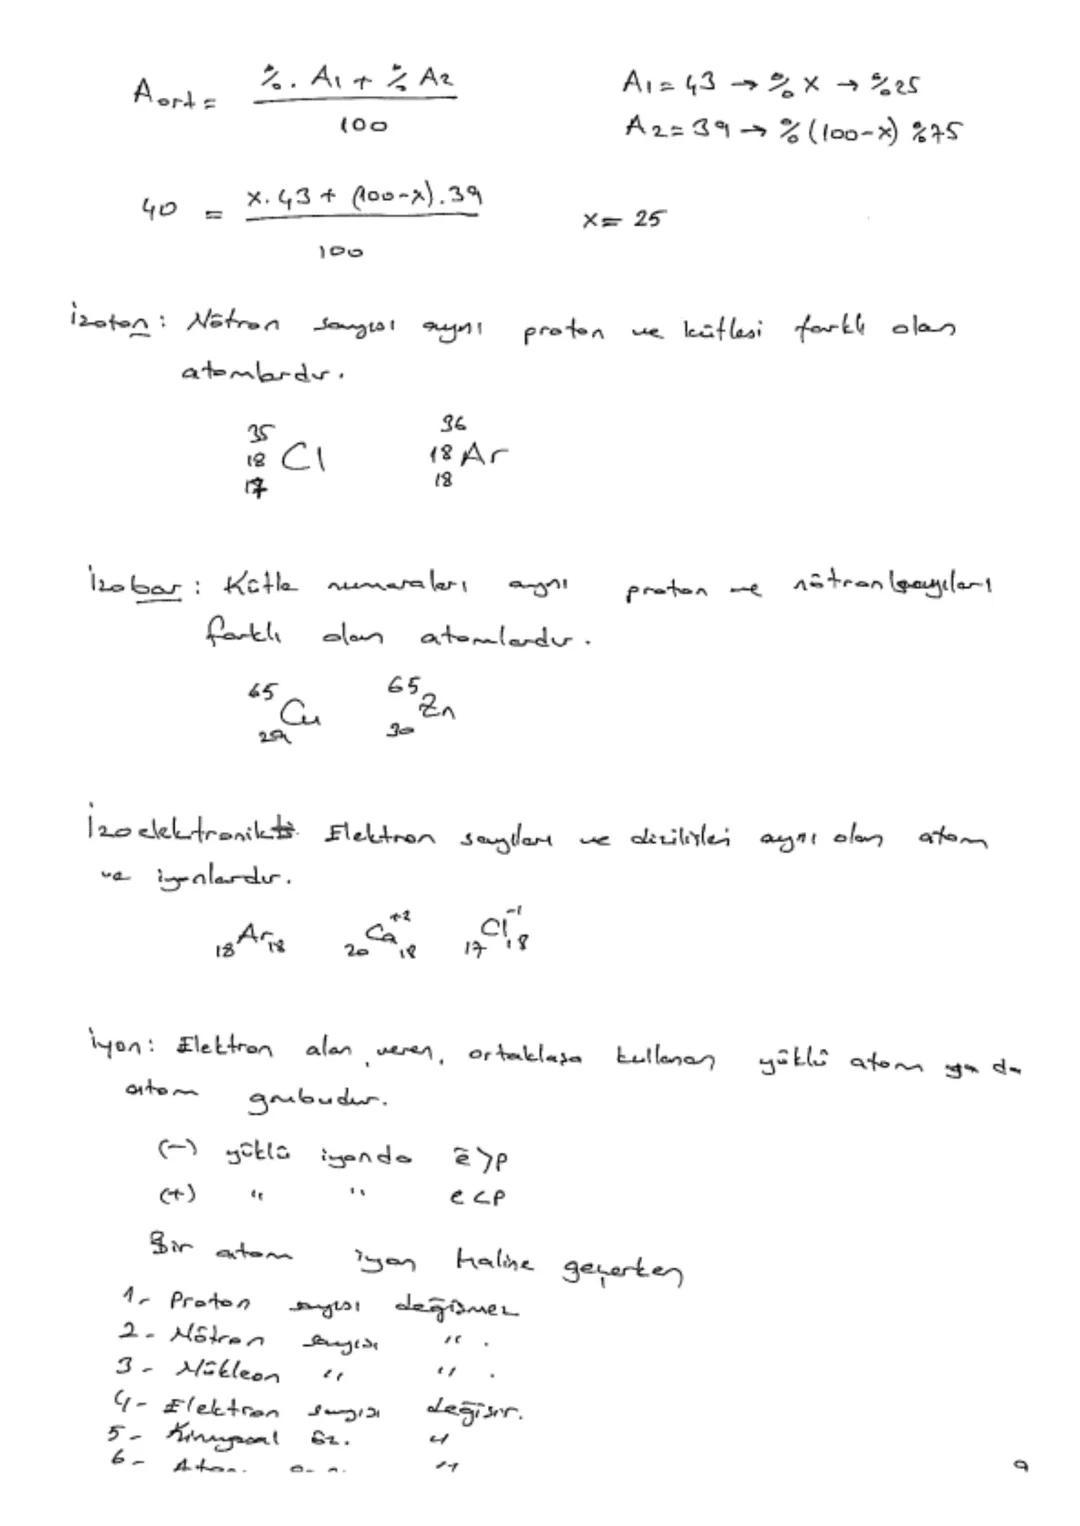 Aort = %. A1 + % A2 / 100
A1 = 43 → % x → %25
A2 = 39 → % (100-x) %75
40 = x. 43 + (100-x). 39 / 100
x = 25
İzoton : Nötron sayısı aynı proton ve kütlesi farklı olan
atomlardır.
35 36
18 Cl 18 Ar
17 18
İzobar : Kütle numaraları aynı proton ve nötron sayıları
farklı olan atomlardır.
65 Cu 65 Zn
29 30
İzoelektronik Elektron sayıları ve dizilişleri aynı olan atom
ve iyonlardır.
18 Ar 18 20 Ca+2 18 17 Cl-1 18
İyon : Elektron alan, veren, ortaklaşa kullanan yüklü atom ya da
atom grubudur.
(-) yüklü iyonda ē>p
(+) " " e<p
Bir atom iyon haline geçerken
1- Proton sayısı değişmez
2- Nötron sayısı " .
3- Nükleon " " .
4- Elektron sayısı değişir.
5- Kimyasal öz. "
6- Atom "
9